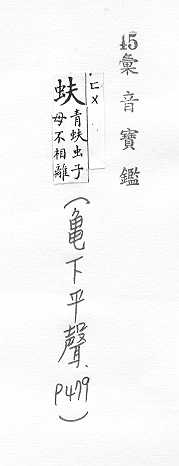 45彙音寶鑑
ㄈㄨ
蚨
青蚨虫子
母不相離
(龜下平聲、P479)